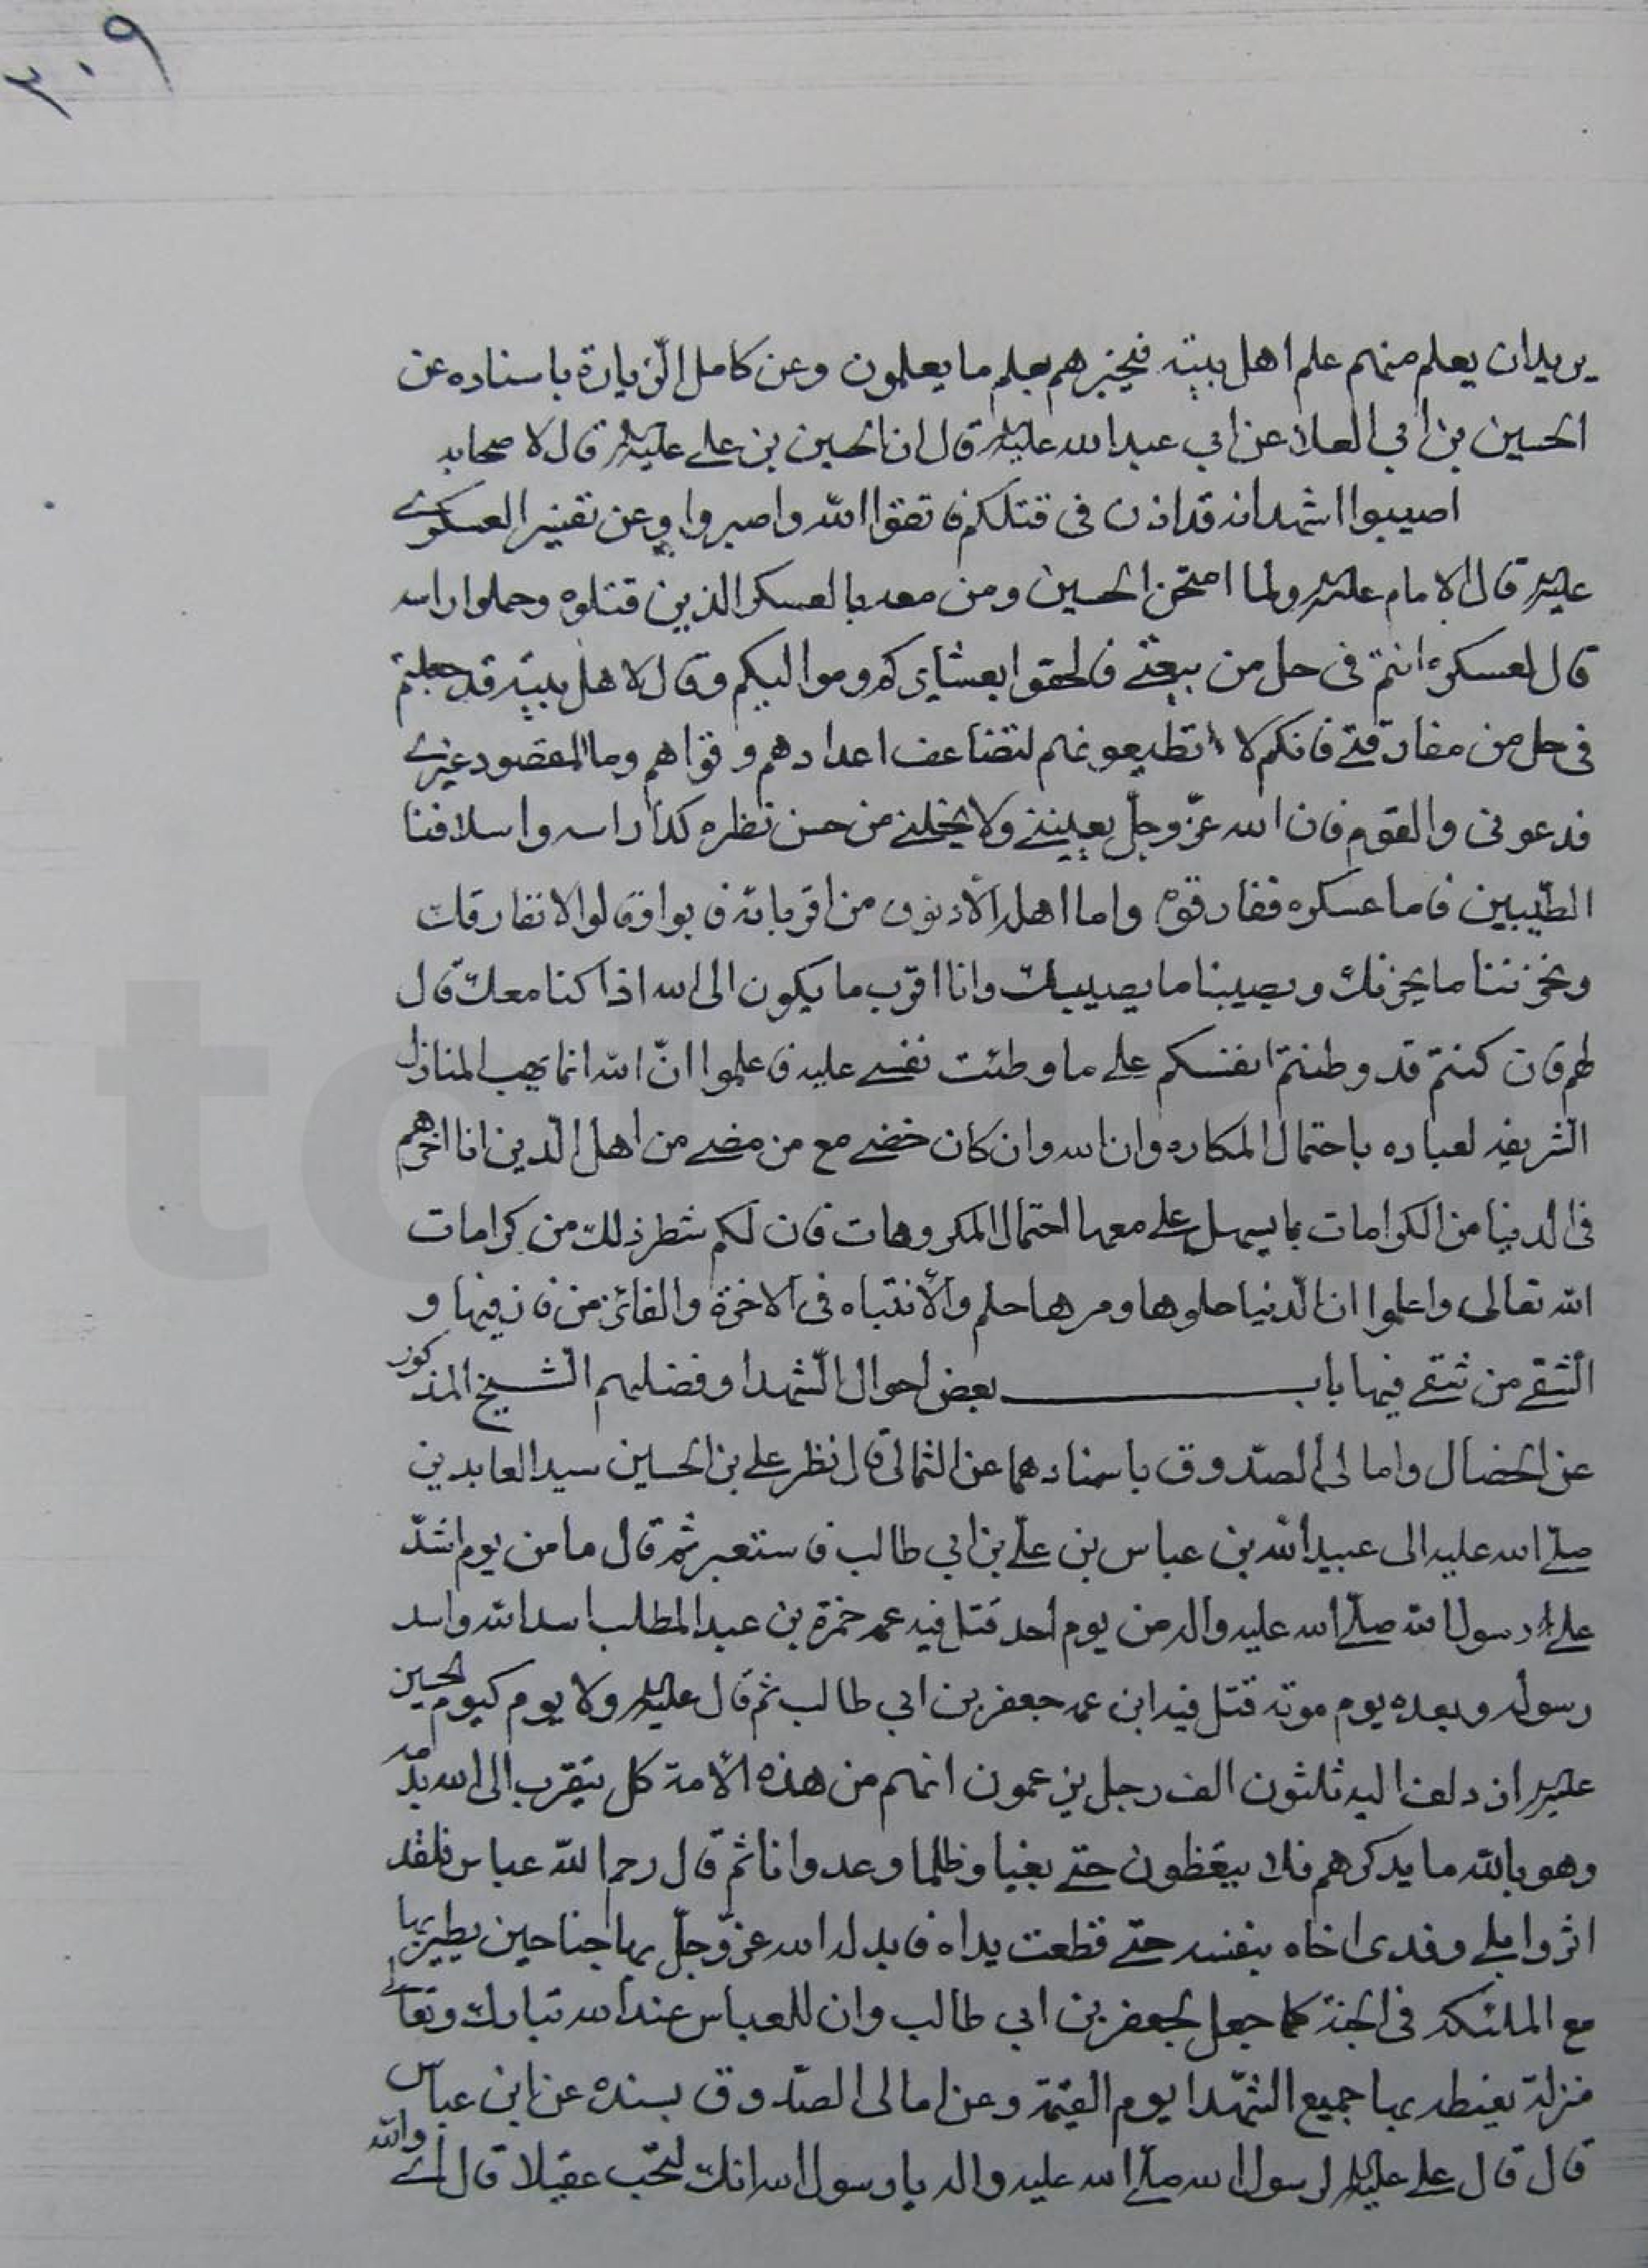 ٣٠٩
يريدان يعلم منهم علم اهل بيته فيخبرهم بعلم ما يعلمون وعن كامل الزيارة باسناده عن
الحسين بن ابي العلا عن ابي عبد الله عليه قال ان الحسين بن علي عليه قال لاصحابه
اصيبوا اشهد انه قد اذن في قتلكم فاتقوا الله واصبروا وعن تفسير العسكري
عليه قال الامام عليه ولما امتحن الحسين ومن معه بالعسكر الذين قتلوه وحملوا راسه
قال لعسكره انتم في حل من بيعتي فالحقوا بعشايركم ومواليكم وقال لاهل بيته قد جعلتكم
في حل من مفارقتي فانكم لا تطيعونهم لتضاعف اعدادهم وقواهم وما المقصود غيري
فدعوني والقوم فان الله عزّ وجلّ يعينني ولا يخلني من حسن نظره كدا راسه واسلافنا
الطّيبين فاما عسكره ففارقوه واما اهله الأدنون من اقربائه فابوا وقالوا لا نفارقك
ويحزننا ما يحزنك ويصيبنا ما يصيبك وانا اقرب ما يكون الى الله اذا كنا معك قال
لهم فان كنتم قد وطنتم انفسكم على ما وطئت نفسي عليه فاعلموا انّ الله انما يهب المنازل
الشريفه لعباده باحتمال المكاره وان الله وان كان خصني مع من مضى من اهل الّدين انا اخرهم
في الدنيا من الكرامات بما يسهل علي معها احتمال المكروهات فان لكم شطر ذلك من كرامات
الله تعالى واعلموا ان الّدنيا حلوها ومرها حلم والأنتباه في الاخرة والفائز من فاز فيها و
الشقي من شقي فيها باب بعض احوال الّشهدا وفضلهم الشيخ المذكور
عن الخصال وامالى الصّدوق باسنادهما عن الثمالى قال نظر علي بن الحسين سيد العابدين
صلّى الله عليه الى عبيد الله بن عباس بن علّي بن ابي طالب فاستعبر ثم قال ما من يوم اشدّ
على رسول الله صلّى الله عليه واله من يوم احد قتل فيه عمه حمزة بن عبد المطلب اسد الله واسد
رسوله وبعده يوم موته قتل فيه ابن عمه جعفر بن ابي طالب ثم قال عليه ولا يوم كيوم الحسين
عليه اذ دلف اليه ثلثون الف رجل يزعمون انهم من هذه الأمة كل يتقرب الى الله بدمه
وهو بالله ما يدكرهم فلا يتعظون حتى بغيا وظلما وعدوانا ثم قال رحم الله عباس فلقد
اثر وابلى وفدى اخاه بنفسه حتّى قطعت يداه فابدله الله عزّ وجلّ بها جناحين يطير بها
مع الملئكه في الجنة كما جعل لجعفر بن ابي طالب وان للعباس عند الله تبارك وتعالى
منزلة يغبطه بها جميع الشهّدا يوم القيمة وعن امالى الصّدوق بسنده عن ابن عباس
قال قال علي عليه لرسول الله صلّى الله عليه واله يا رسول الله انك لتحّب عقيلا قال اي والله